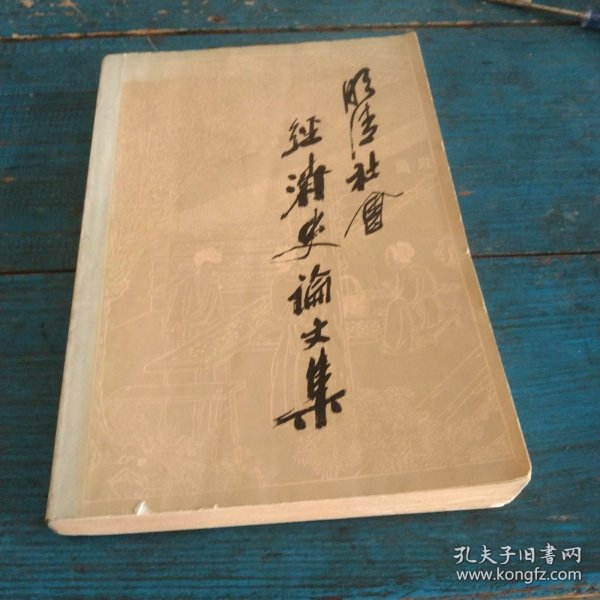 明清社會
經濟史論文集
孔夫子旧書网
www.kongfz.com